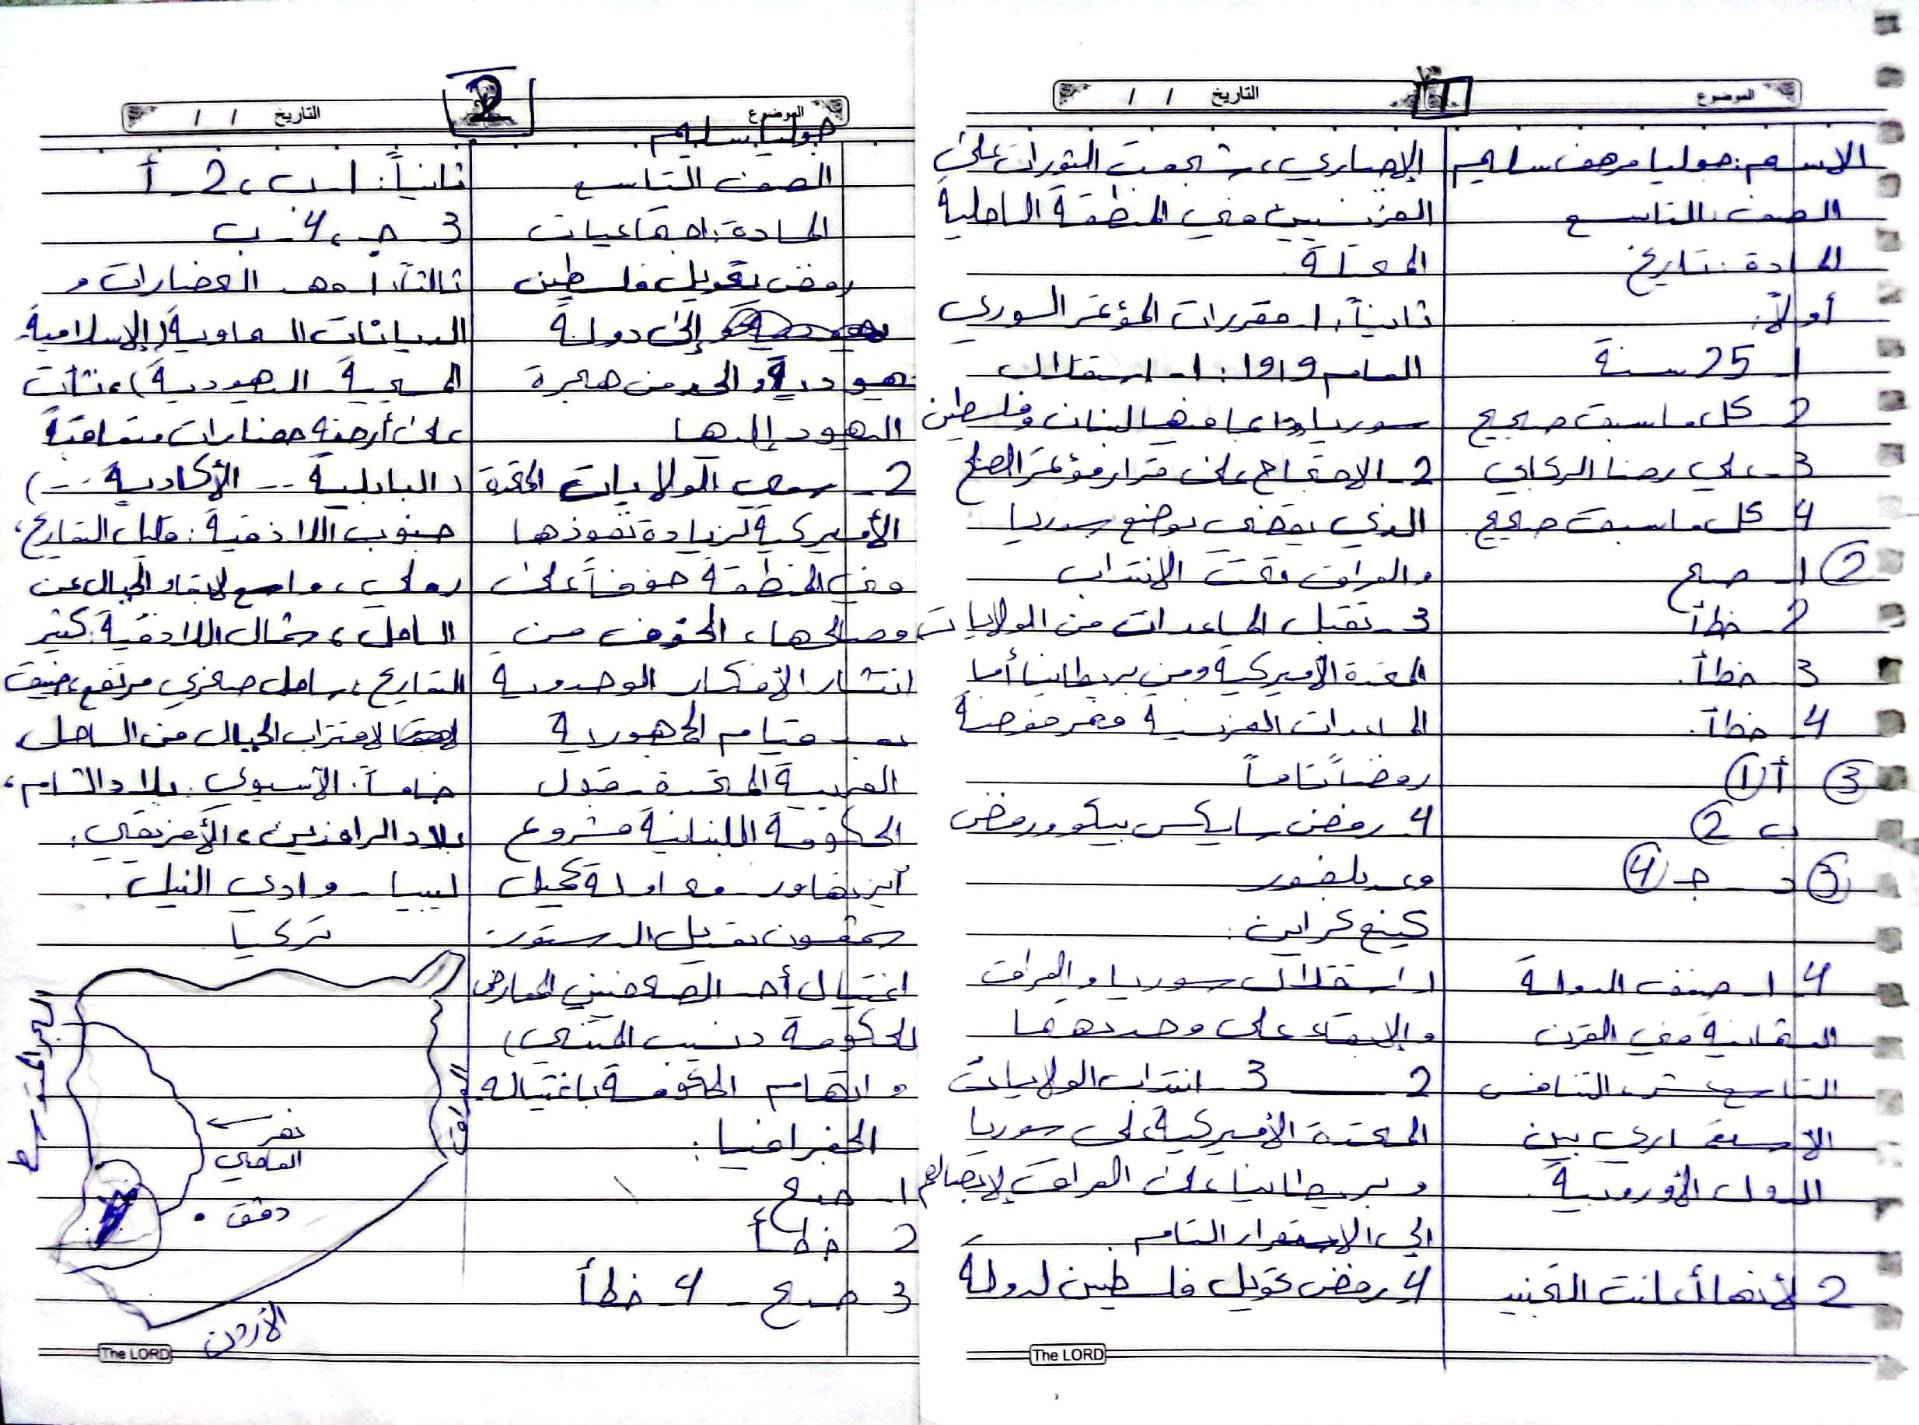 الموضوع
التاريخ / /
1
الاسم: جوليا مرهف سليم
الصف: التاسع
المادة: تاريخ
أولاً:
1_ 25 سنة
2_ كل ما سبق صحيح
3_ علي رضا الركابي
4_ كل ما سبق صحيح
2 1_ صح
2_ خطأ
3_ خطأ.
4_ خطأ.
3 أ 1
ب 2
3 د _ جـ 4
4 1_ ضعف الدولة
العثمانية في القرن
التاسع عشر، التنافس
الاستعماري بين
الدول الأوروبية.
2 لأنها أعلنت التجنيد
الإجباري، شجعت الثورات على
الفرنسيين في المنطقة الساحلية
المحتلة.
ثانياً: 1_ مقررات المؤتمر السوري
العام 1919: 1_ استقلال
سوريا بما فيها لبنان وفلسطين
2_ الاحتجاج على قرار مؤتمر الصلح
الذي يقضي بوضع سوريا
والعراق تحت الانتداب
3_ تقبل المساعدات من الولايات
المتحدة الأميركية ومن بريطانيا أما
المساعدات الفرنسية فمرفوضة
رفضاً تاماً
4_ رفض سايكس بيكو ورفض
وعد بلفور
كينغ كراين:
1_ استقلال سوريا والعراق
والإبقاء على وحدتهما
2_ 3_ انتداب الولايات
المتحدة الأميركية على سوريا
و بريطانيا على العراق لإيصالهم
إلى الاستقرار التام.
4_ رفض تحويل فلسطين لدولة
The LORD
الموضوع
التاريخ / /
2
جوليا سليم
الصف التاسع
المادة: اجتماعيات
رفض تحويل فلسطين
إلى دولة
يهودية والحد من هجرة
اليهود إليها
2_ سعي الولايات المتحدة
الأميركية لزيادة نفوذها
في المنطقة خوفاً على
مصالحها، الخوف من
انتشار الأفكار الوحدوية
بعد قيام الجمهورية
العربية المتحدة _ قبول
الحكومة اللبنانية مشروع
آيزنهاور _ محاولة كميل
شمعون تعديل الدستور _
اغتيال أحد الصحفيين المعارض
للحكومة (نسيب المتني)
و اتهام الحكومة باغتياله.
الجغرافيا:
1_ صح
2_ خطأ
3 صح _ 4_ خطأ
ثانياً: 1_ ب، 2_ أ
3_ جـ، 4_ ب
ثالثاً: 1_ مهد الحضارات و
الديانات السماوية (الإسلامية
المسيحية _ اليهودية)، نشأت
على أرضه حضارات متعاقبة
(البابلية _ .. الأكادية _ ..)
جنوب اللاذقية: قليل التعاريج،
رملي، واسع لابتعاد الجبال عن
الساحل، شمال اللاذقية: كثير
التعاريج، ساحل صخري مرتفع، ضيق
لاقتراب الجبال من الساحل.
خامساً: الآسيوي: بلاد الشام،
بلاد الرافدين، الأفريقي:
ليبيا _ وادي النيل.
تركيا
البحر المتوسط
العراق
نهر
العاصي
دمشق
الأردن
The LORD